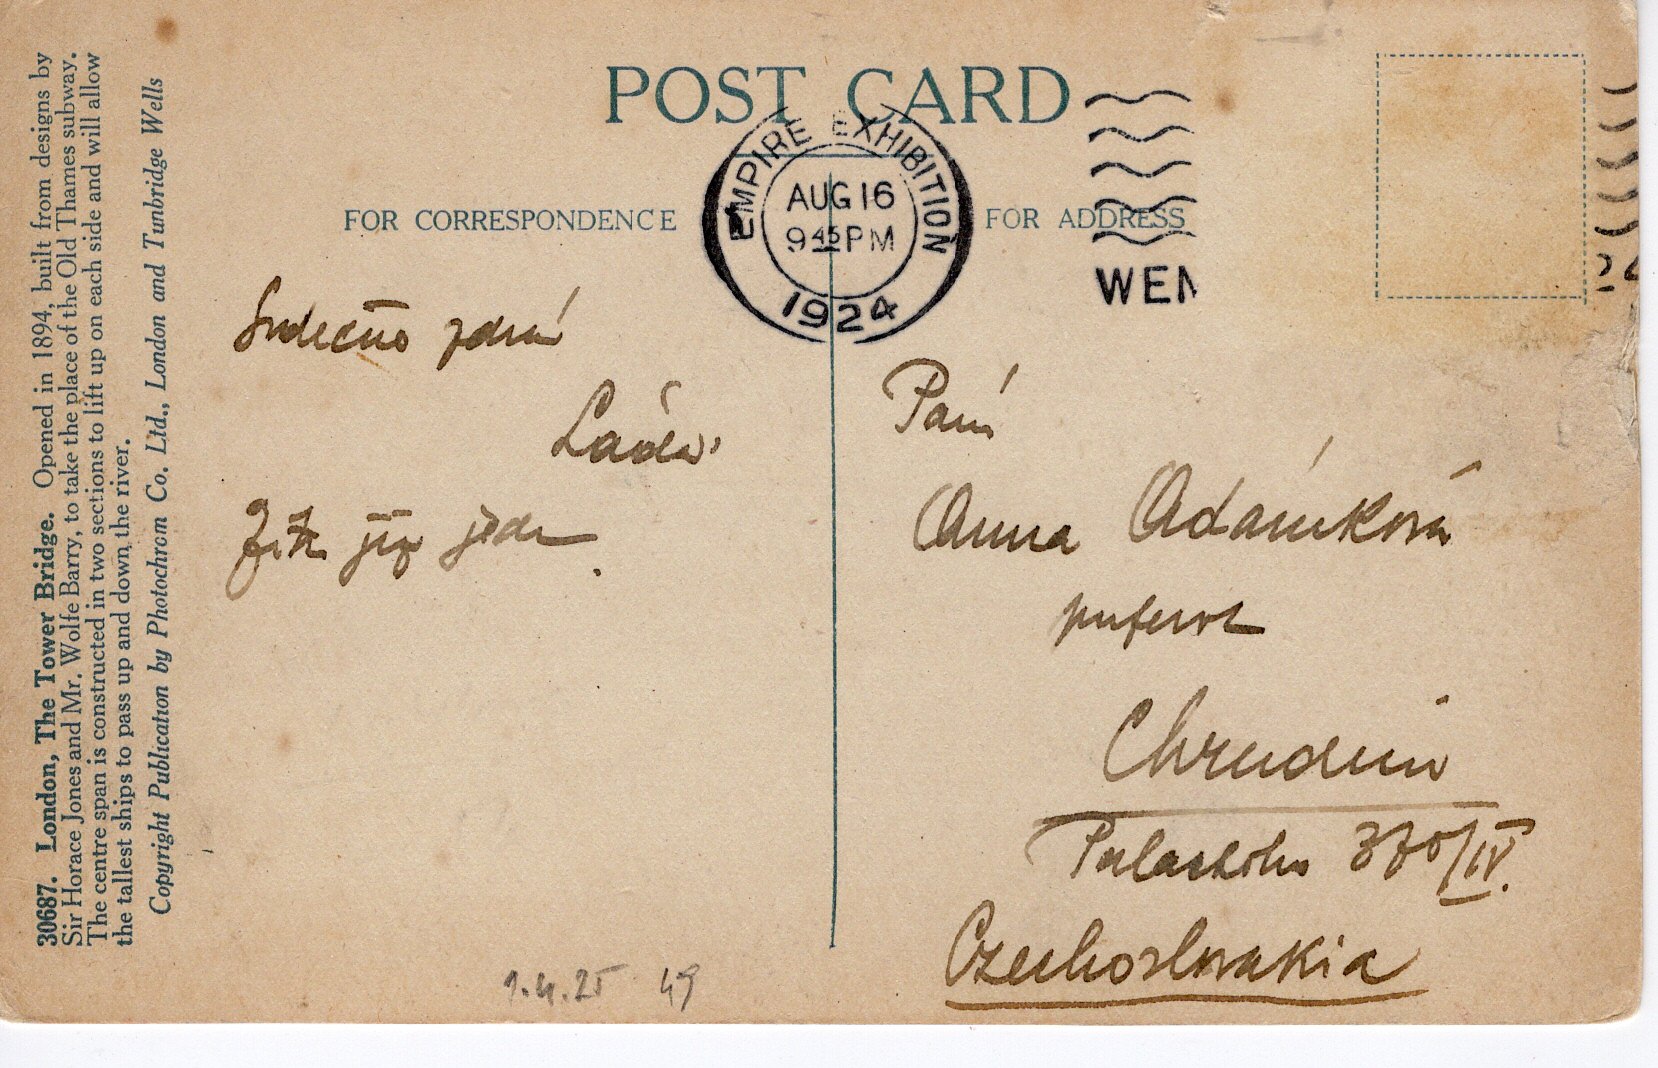 POST CARD
FOR CORRESPONDENCE
FOR ADDRESS
EMPIRE EXHIBITION
AUG 16
9 45 PM
1924
WEM
24
30687. London, The Tower Bridge. Opened in 1894, built from designs by
Sir Horace Jones and Mr. Wolfe Barry, to take the place of the Old Thames subway.
The centre span is constructed in two sections to lift up on each side and will allow
the tallest ships to pass up and down the river.
Copyright Publication by Photochrom Co. Ltd., London and Tunbridge Wells
Srdečně zdraví
Láďa
jede
Paní
Anna Adámková
Chrudim
Palackého 370/IV.
Czechoslovakia
1.4.25 49